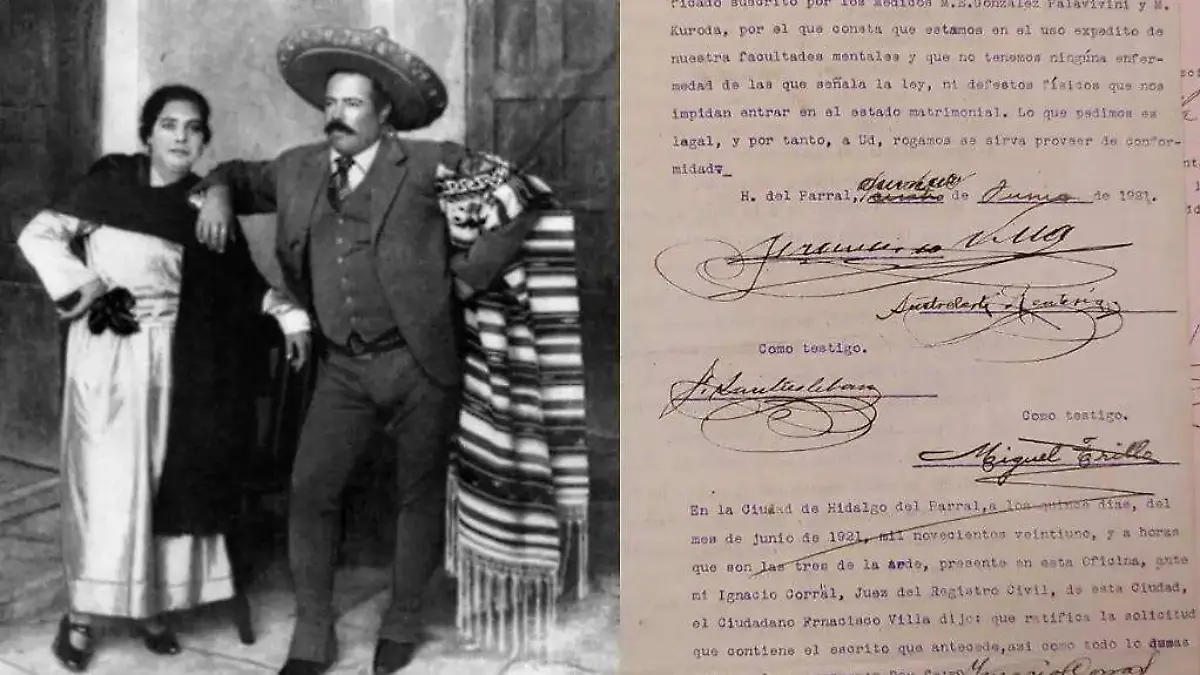 ficado suscrito por los médicos M.E.González Palavivini y M.
Kuroda, por el que consta que estamos en el uso expedito de
nuestra facultades mentales y que no tenemos ningúna enfer-
medad de las que señala la ley, ni defestos físicos que nos
impidan entrar en el estado matrimonial. Lo que pedimos es
lagal, y por tanto, a Ud, rogamos se sirva proveer de confor-
midad
H. del Parral, de Junio de 1921.
Francisco Villa
Austreberta Rentería
Como testigo.
Como testigo.
Miguel Trillo
En la Ciudad de Hidalgo del Parral,a los quince días, del
mes de junio de 1921, mil novecientos veintiuno, y a horas
que son las tres de la arde, presente en esta Oficina, ante
mi Ignacio Corrál, Juez del Registro Civil, de esta Ciudad,
el Ciudadano Ernacisco Villa dijo: que ratifica la solicitud
que contiene el escrito que antecede,asi como todo lo dumas
Ignacio Corral